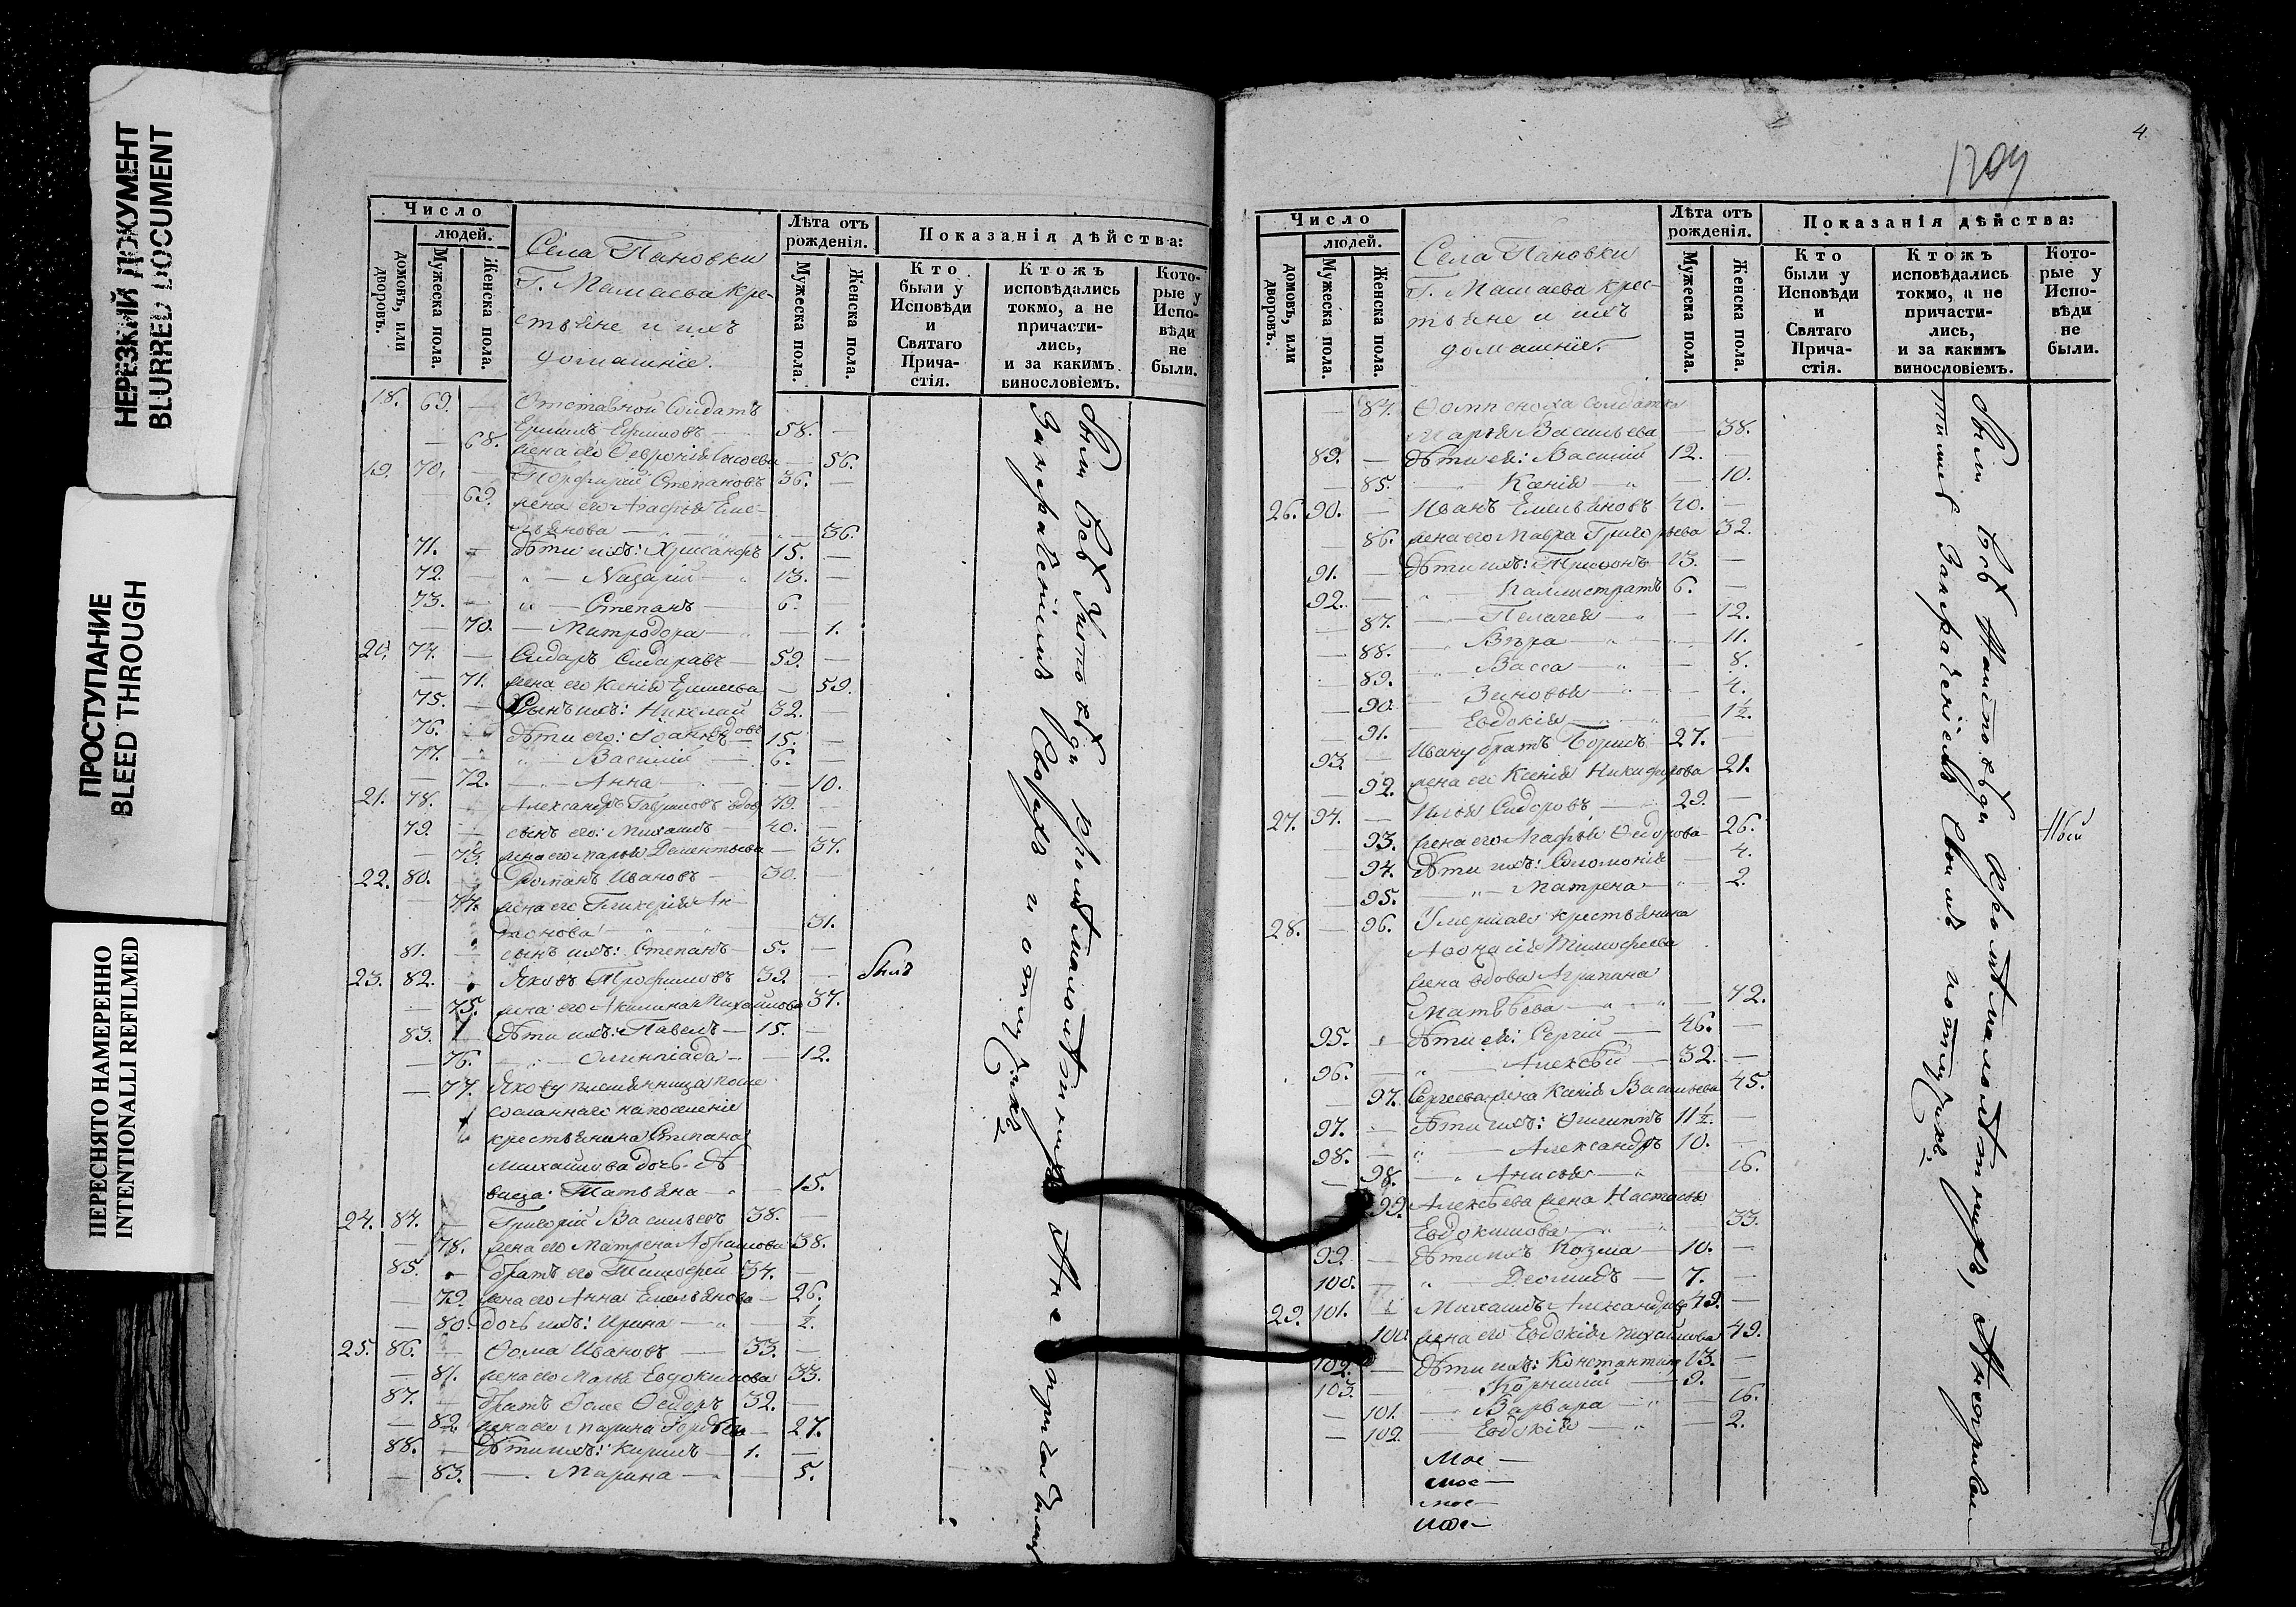 НЕРЕЗКИЙ ДОКУМЕНТ
BLURRED DOCUMENT
ПРОСТУПАНИЕ
BLEED THROUGH
ПЕРЕСНЯТО НАМЕРЕННО
INTENTIONALLI REFILMED
Число
людей.
домовъ, или дворовъ.
Мужеска пола.
Женска пола.
Села Пановки
Г. Мамаева кре-
стьяне и ихъ
домашніе.
Лѣта отъ рожденія.
Мужеска пола.
Женска пола.
Показанія дѣйства:
Кто были у Исповѣди и Святаго Прича-стія.
Ктожъ исповѣдались токмо, а не причасти-лись, и за какимъ винословіемъ.
Кото-рые у Испо-вѣди не были.
18. 69. — Отставной Солдатъ
Ермилъ Ефимовъ 58. —
— 68. жена его Февронія — 56.
19. 70. — Порфирій Степановъ 36. —
69. жена его Агафья Еме-
льянова — 36.
71. — дѣти ихъ: Хрисанфъ 15. —
72. — Назарій 13. —
73. — Степанъ 6. —
— 70. — Митродора — 1.
20. 74. — Сидаръ Сидаравъ 59. —
— 71. жена его Ксенія — 59.
75. — Сынъ ихъ: Николай 32. —
76. — дѣти его: 15. —
77. — Василій 6. —
— 72. — Анна — 10.
21. 78. — Александръ Гавриловъ вдов 79. —
79. — сынъ его: Михаилъ 40. —
— 73. жена его Марья Дементьева — 37.
22. 80. — Романъ Ивановъ 30. —
— 74. жена его Гликерія Ан-
— 31.
81. — сынъ ихъ: Степанъ 5. —
23. 82. — Яковъ Трофимовъ 39. — былъ
— 75. жена его Акилина Михайлова 37.
83. дѣти ихъ: Павелъ 15. —
— 76. — Олимпіада — 12.
— 77. Якову племянница
сосланнаго на поселеніе
крестьянина Степана
Михайлова дочь дѣ-
вица: Татьяна — 15.
24. 84. — Григорій Васильевъ 38. —
— 78. жена его Матрена Абрамова 38.
85. — братъ его Тимофей 34. —
— 79. жена его Анна Емельянова 26.
— 80. дочь ихъ: Ирина — ½.
25. 86. — Ѳома Ивановъ 33. —
— 81. жена его Марья Евдокимова 33.
87. — братъ Ѳоме Ѳедоръ 32. —
— 82. жена его Марина — 27.
88. — дѣти ихъ: Кирилъ 1. —
— 83. — Марина — 5.
были всѣ у исповѣди кромѣ малолѣтнихъ
4.
1209
Число
людей.
домовъ, или дворовъ.
Мужеска пола.
Женска пола.
Села Пановки
Г. Мамаева крес-
тьяне и ихъ
домашніе.
Лѣта отъ рожденія.
Мужеска пола.
Женска пола.
Показанія дѣйства:
Кто были у Исповѣди и Святаго Прича-стія.
Ктожъ исповѣдались токмо, а не причасти-лись, и за какимъ винословіемъ.
Кото-рые у Испо-вѣди не были.
— 84. сноха солдатка
Марья Васильева — 38.
89. — дѣти ея: Василій 12. —
— 85. — Ксенія — 10.
26. 90. — Иванъ Емельяновъ 40. —
— 86. жена его Мавра Григорьева 32.
91. — дѣти ихъ: Трифонъ 13. —
92. — Каллистратъ 6. —
— 87. — Пелагея — 12.
— 88. — Вѣра — 11.
— 89. — Васса — 8.
— 90. — Зиновья — 4.
— 91. — Евдокія — 1½.
93. — Ивану братъ Борисъ 27. —
— 92. жена его Ксенія Никифорова 21.
27. 94. — Илья Сидоровъ 29. —
— 93. жена его Агафья Ѳедорова 26.
— 94. дѣти ихъ: Соломонія — 4.
— 95. — Матрена — 2.
28. — 96. Умершаго крестьянина
Аѳонасія Тимофеева
жена вдова Агрипина
Матвѣева — 72.
95. дѣти ея: Сергій 46. —
96. — Алексѣй 32. —
— 97. Сергеева жена Ксенія Васильева 45.
97. — дѣти ихъ: Филиппъ 11½. —
98. — Александръ 10. —
— 98. — Анисья — 16.
— 99. Алексѣева жена Настасья
Евдокимова — 33.
99. — дѣти ихъ Козма 10. —
100. — Деомидъ 7. —
29. 101. — Михаилъ Александровъ 49. —
100. жена его Евдокія Михайлова 49.
102. — дѣти ихъ: Константинъ 13. —
103. — Корнилій 9. —
— 101. — Варвара — 16.
— 102. — Евдокія — 2.
Мое —
мое —
мое —
мое —
были всѣ у исповѣди кромѣ малолѣтнихъ,